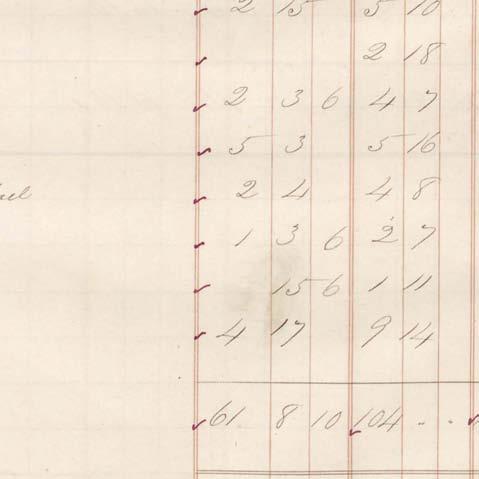 ✓ 2 15 5 10
✓ 2 18
✓ 2 3 6 4 7
✓ 5 3 5 16
✓ 2 4 4 8
✓ 1 3 6 2 7
✓ 15 6 1 11
✓ 4 17 9 14
✓ 61 8 10 ✓ 104 . . ✓